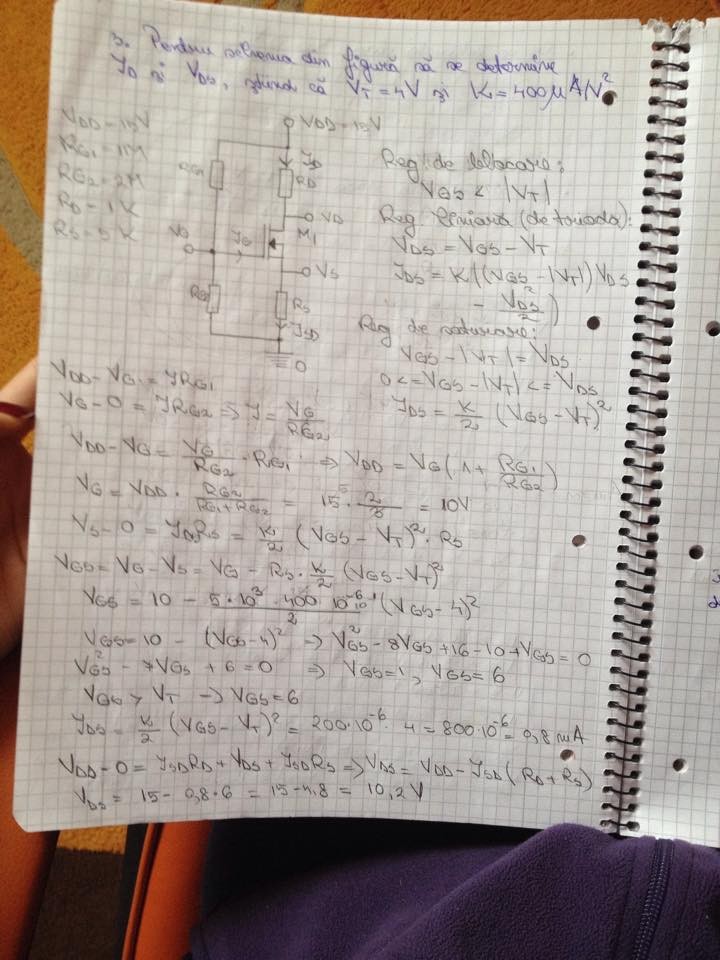 3. Pentru schema din figură să se determine
ID și VDS, știind că VT = 4V și K = 400 μA/V²
VDD = 15V
RG1 = 1M
RG2 = 2M
RD = 1K
RS = 5K
VDD = 15V
RG1
ID
RD
VD
M1
VG
IG
VS
RG2
RS
ISD
0
Reg. de blocare:
VGS < |VT|
Reg. liniară (de triodă):
VDS = VGS - VT
IDS = K((VGS - |VT|) VDS
- VDS²/2)
Reg de saturare:
VGS - |VT| = VDS
0 <= VGS - |VT| <= VDS
IDS = K/2 (VGS - VT)²
VDD - VG = IRG1
VG - 0 = IRG2 => I = VG/RG2
VDD - VG = VG/RG2 · RG1 => VDD = VG(1 + RG1/RG2)
VG = VDD · RG2/(RG1 + RG2) = 15 · 2/3 = 10V
VS - 0 = IDRS = K/2 (VGS - VT)² · RS
VGS = VG - VS = VG - RS · K/2 (VGS - VT)²
VGS = 10 - 5·10³·400·10⁻⁶/2 (VGS - 4)²
VGS = 10 - (VGS - 4)² → VGS² - 8VGS + 16 - 10 + VGS = 0
VGS² - 7VGS + 6 = 0 => VGS = 1, VGS = 6
VGS > VT → VGS = 6
IDS = K/2 (VGS - VT)² = 200·10⁻⁶ · 4 = 800·10⁻⁶ = 0,8 mA
VDD - 0 = ISDRD + VDS + ISDRS => VDS = VDD - ISD(RD + RS)
VDS = 15 - 0,8·6 = 15 - 4,8 = 10,2 V